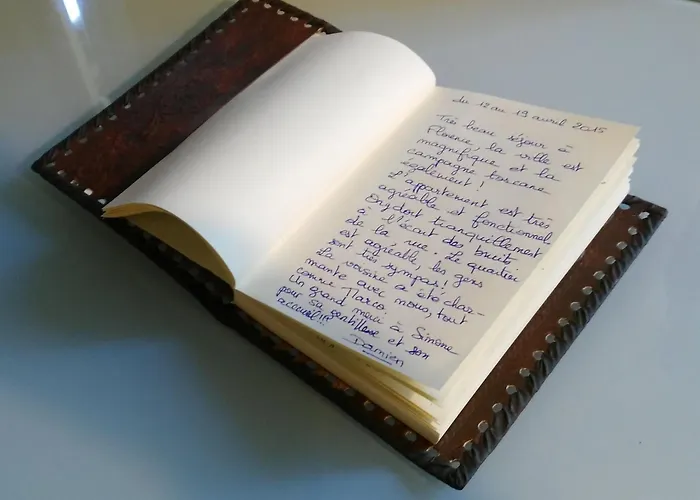 du 12 au 19 avril 2015
Très beau séjour à
Florence, la ville est
magnifique et la
campagne toscane
également !
L'appartement est très
agréable et fonctionnel
On y dort tranquillement
à l'écart des bruits
de la rue. Le quartier
est agréable, les gens
sont très sympas !
La voisine a été char-
mante avec nous, tout
comme Marco.
Un grand merci à Simone
pour sa gentillesse et son
accueil !!!
Damien